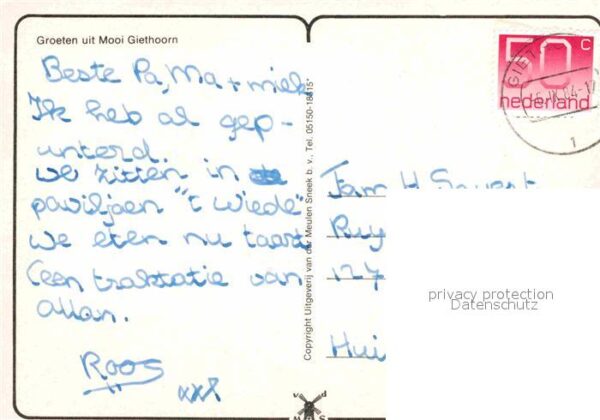 Groeten uit Mooi Giethoorn
Beste Pa, Ma + miek
Ik heb al gep-
unterd.
we zitten in
paviljoen "t wiede"
we eten nu taart
(een traktatie van
allan.
Roos
xxx
Copyright Uitgeverij van der Meulen Sneek b. v., Tel. 05150-18615*
50 c
nederland
GIET
1
Fam H
Ruy
12-7
Hui
privacy protection
Datenschutz
v d
M S